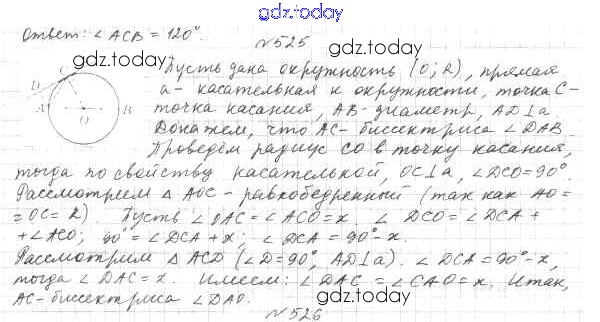 gdz.today
Ответ: ∠ACB = 120°.
№525
gdz.today
Пусть дана окружность (O; R), прямая
a - касательная к окружности, точка C-
точка касания, AB-диаметр, AD⊥a.
Докажем, что AC- биссектриса ∠DAB.
Проведём радиус CO в точку касания,
D
C
A
O
B
gdz.today
тогда по свойству касательной, OC⊥a, ∠DCO=90°.
Рассмотрим △ AOC - равнобедренный (так как AO=
=OC= R). Пусть ∠OAC=∠ACO=x. ∠DCO=∠DCA+
+∠ACO; 90°=∠DCA+x; ∠DCA=90°-x.
gdz.today
Рассмотрим △ ACD (∠D=90°, AD⊥a). ∠DCA=90°-x,
тогда ∠DAC=x. Имеем: ∠DAC=∠CAO=x. Итак,
AC-биссектриса ∠DAO.
gdz.today
№526